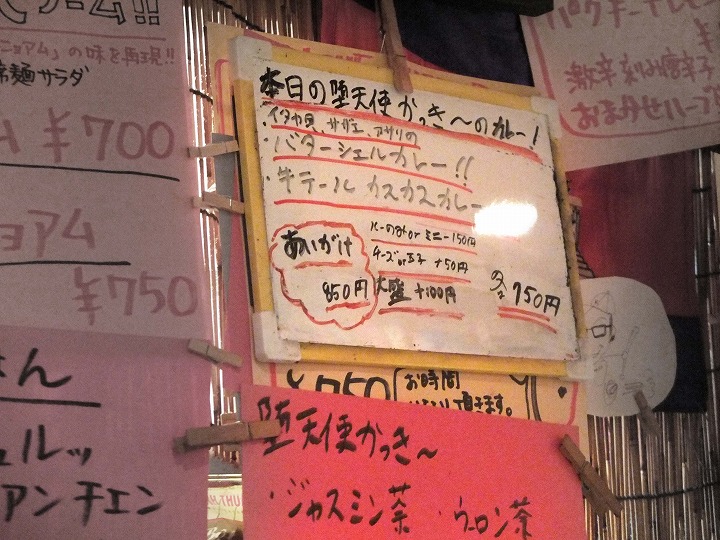 ニョアム」の味を再現!!
麺サラダ
ム ¥700
ョアム
¥750
本日の堕天使かっき〜のカレー!
イタヤ貝、サザエ、アサリの
・バターシェルカレー!!
・牛テール カスカスカレー
あいがけ
850円
ハーフのみor ミニ-150円
チーズor玉子 +50円
大盛 +100円
各 750円
¥750
お時間
頂きます。
激辛刻み唐辛子
おまかせハーブ
堕天使かっき〜
・ジャスミン茶 ・ウーロン茶
ん
ュルッ
アンチエン